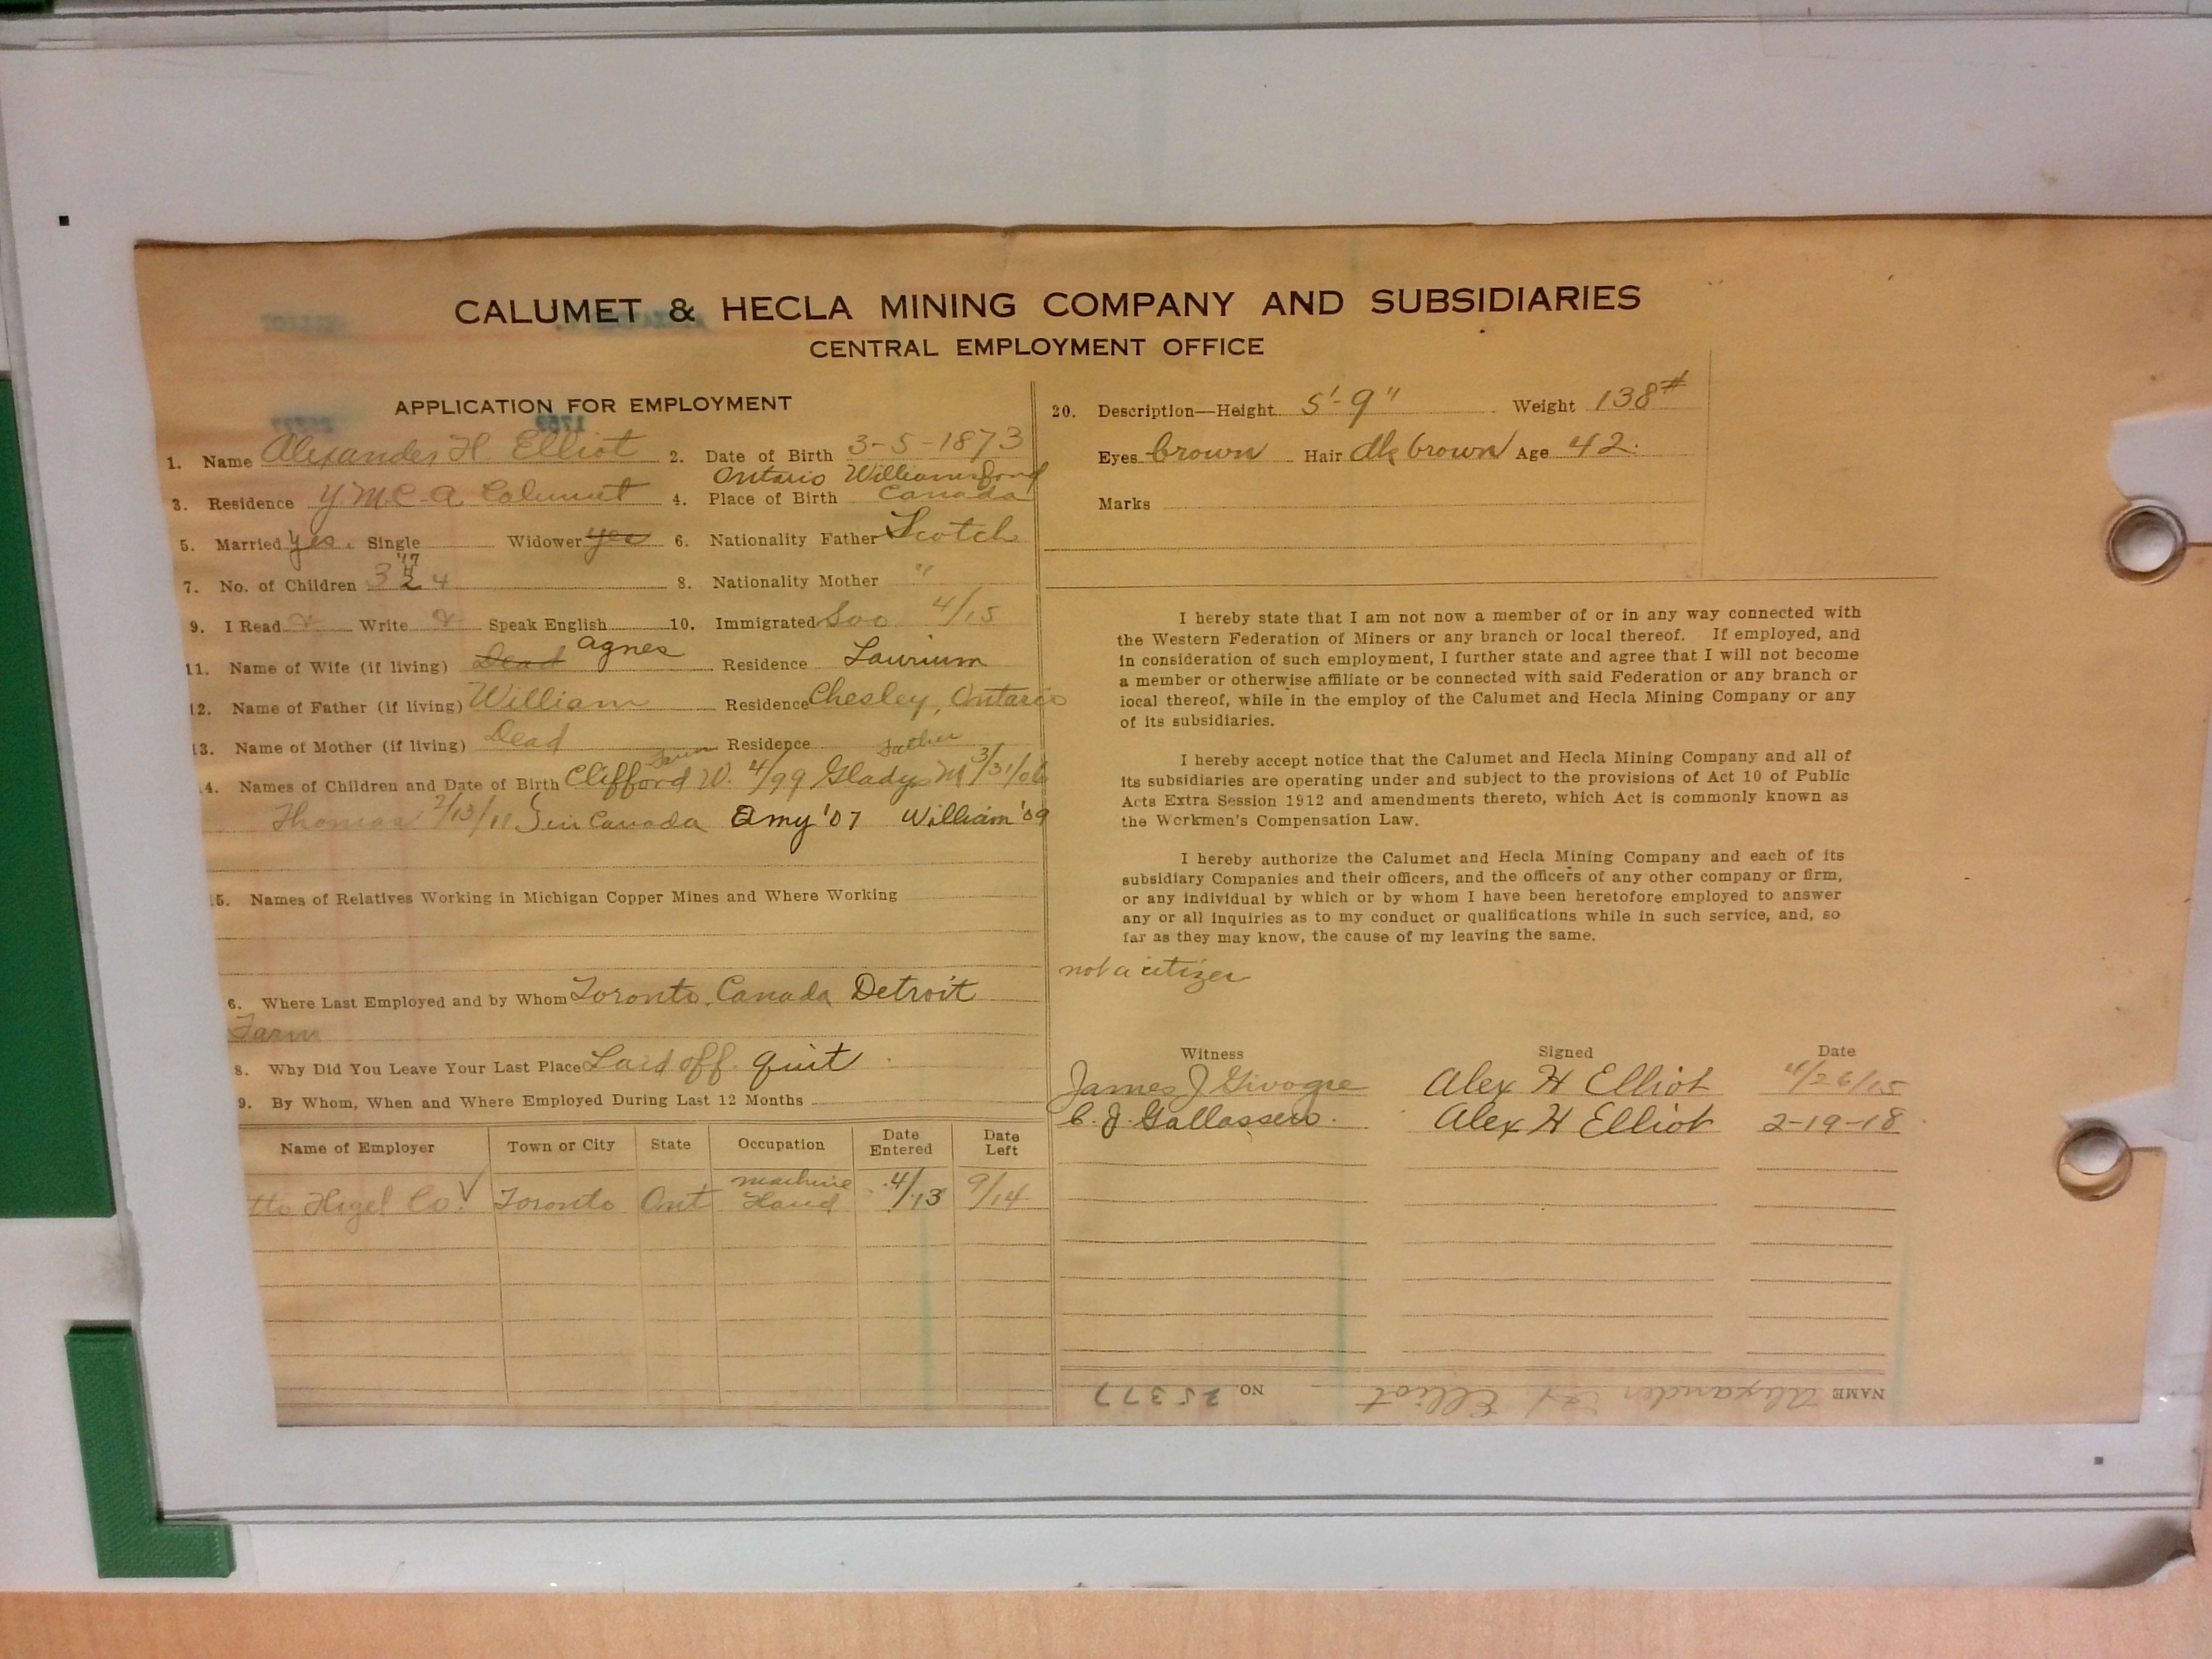 CALUMET & HECLA MINING COMPANY AND SUBSIDIARIES
CENTRAL EMPLOYMENT OFFICE
APPLICATION FOR EMPLOYMENT
1. Name Alexander H. Elliot 2. Date of Birth 3-5-1873
Ontario Williamsford
3. Residence Y.M.C.A Calumet 4. Place of Birth Canada
5. Married yes. Single Widower yes 6. Nationality Father Scotch
'17
7. No. of Children 3 4 8. Nationality Mother "
9. I Read Write Speak English 10. Immigrated Soo 4/15
11. Name of Wife (if living) Dead Agnes Residence Laurium
12. Name of Father (if living) William Residence Chesley, Ontario
13. Name of Mother (if living) Dead Residence
Father
4. Names of Children and Date of Birth Clifford W. 4/99 Gladys M 3/31/06
Thomas 2/13/11 in Canada Amy '07 William '09
5. Names of Relatives Working in Michigan Copper Mines and Where Working
6. Where Last Employed and by Whom Toronto, Canada Detroit
Farm
8. Why Did You Leave Your Last Place Laid off. quit
9. By Whom, When and Where Employed During Last 12 Months
Name of Employer Town or City State Occupation Date Entered Date Left
tto Higel Co. Toronto Ont machine Hand 4/13 9/14
20. Description—Height 5'-9" Weight 138#
Eyes brown Hair dk brown Age 42.
Marks
I hereby state that I am not now a member of or in any way connected with
the Western Federation of Miners or any branch or local thereof. If employed, and
in consideration of such employment, I further state and agree that I will not become
a member or otherwise affiliate or be connected with said Federation or any branch or
local thereof, while in the employ of the Calumet and Hecla Mining Company or any
of its subsidiaries.
I hereby accept notice that the Calumet and Hecla Mining Company and all of
its subsidiaries are operating under and subject to the provisions of Act 10 of Public
Acts Extra Session 1912 and amendments thereto, which Act is commonly known as
the Workmen's Compensation Law.
I hereby authorize the Calumet and Hecla Mining Company and each of its
subsidiary Companies and their officers, and the officers of any other company or firm,
or any individual by which or by whom I have been heretofore employed to answer
any or all inquiries as to my conduct or qualifications while in such service, and, so
far as they may know, the cause of my leaving the same.
not a citizen
Witness Signed Date
James J Alex H Elliot 4/26/15
C. J. Alex H Elliot 2-19-18
NAME Alexander H Elliot NO. 25377